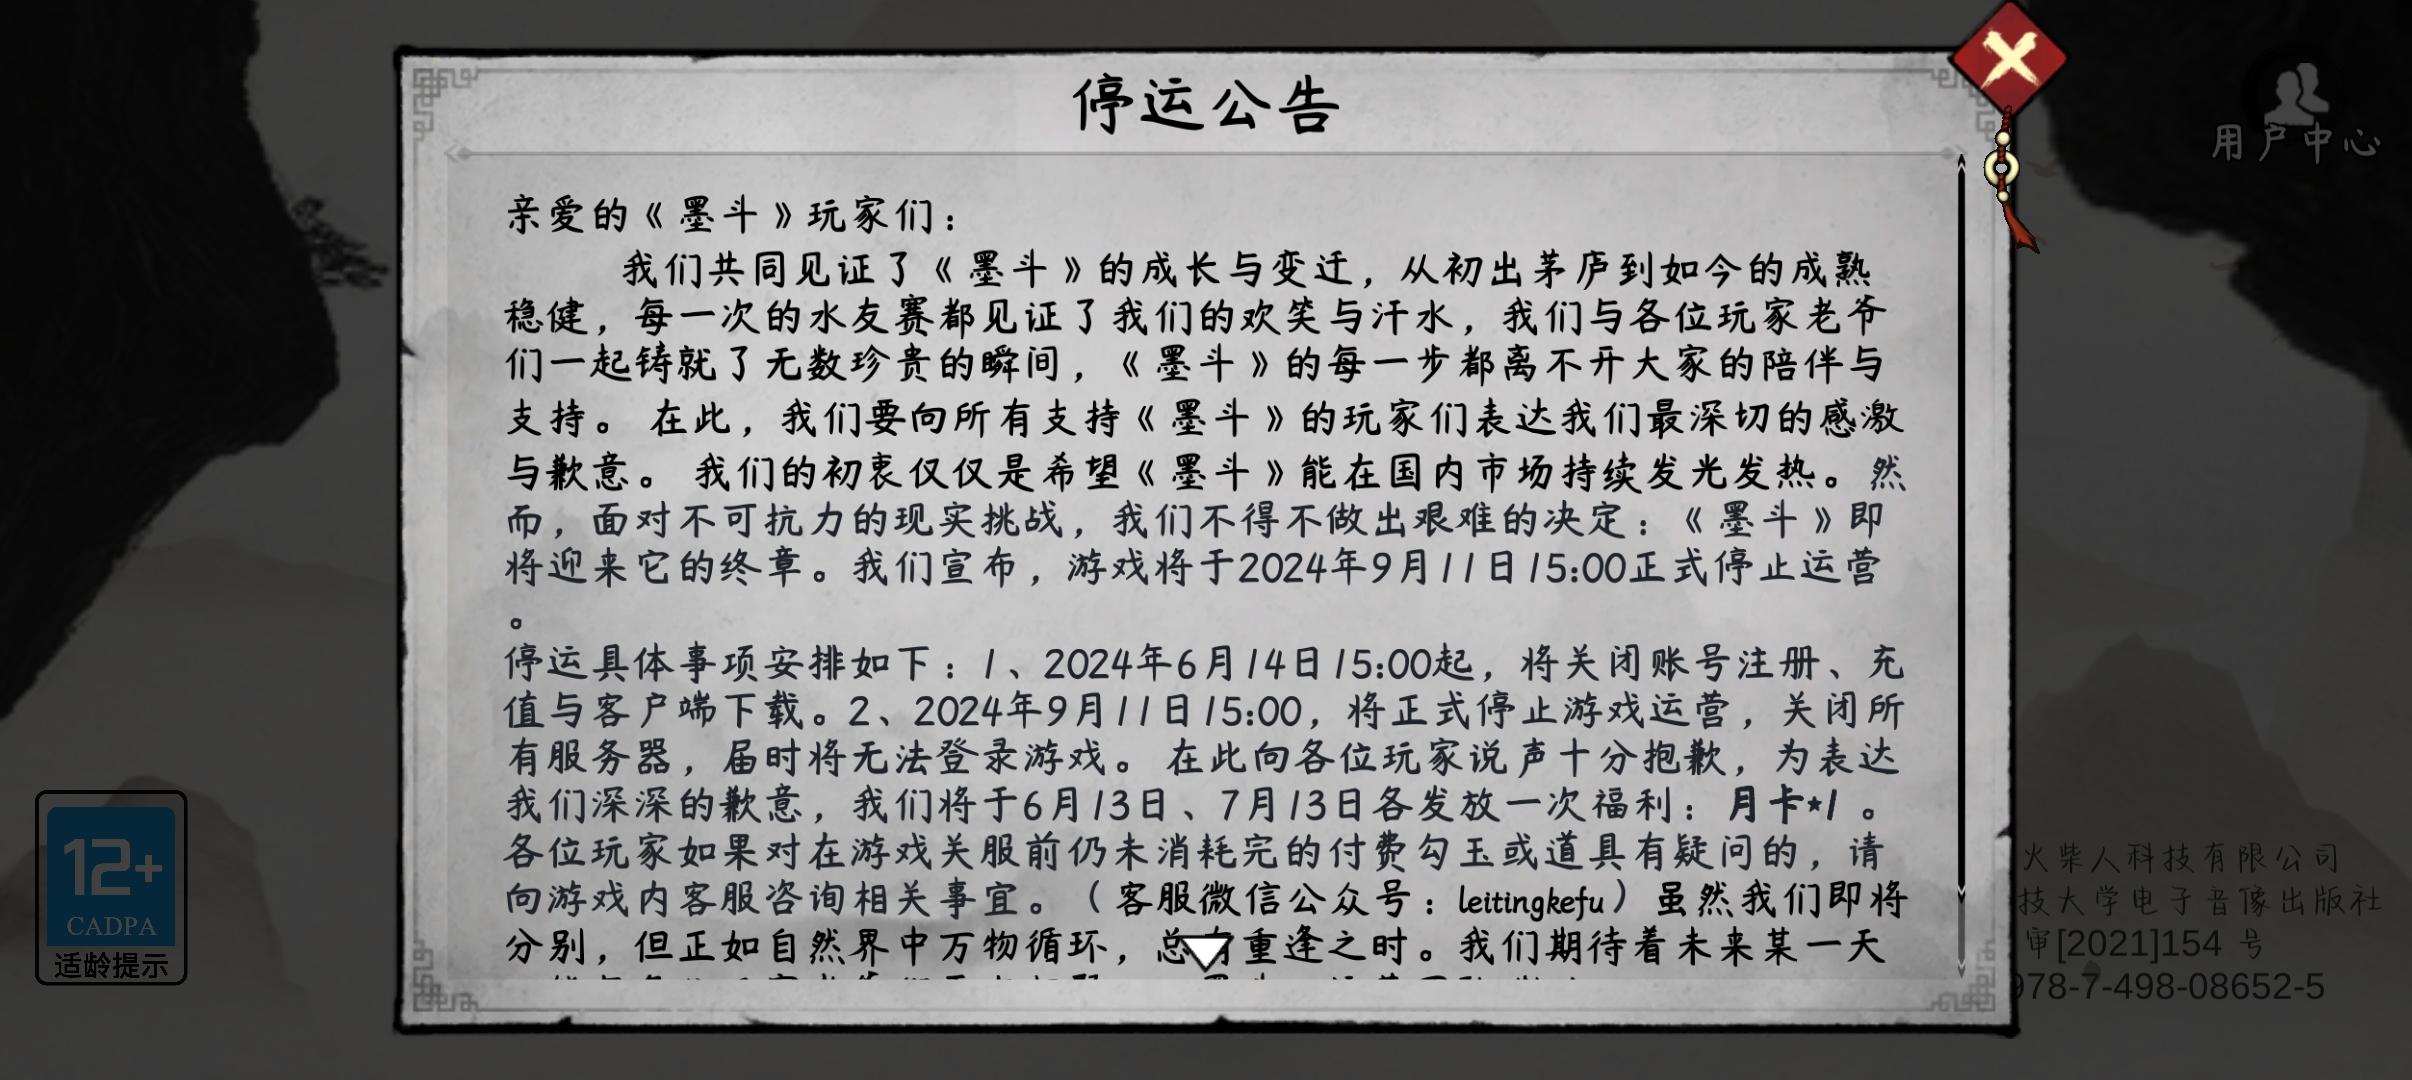 停运公告
用户中心
亲爱的《墨斗》玩家们：
我们共同见证了《墨斗》的成长与变迁，从初出茅庐到如今的成熟
稳健，每一次的水友赛都见证了我们的欢笑与汗水，我们与各位玩家老爷
们一起铸就了无数珍贵的瞬间，《墨斗》的每一步都离不开大家的陪伴与
支持。 在此，我们要向所有支持《墨斗》的玩家们表达我们最深切的感激
与歉意。 我们的初衷仅仅是希望《墨斗》能在国内市场持续发光发热。然
而，面对不可抗力的现实挑战，我们不得不做出艰难的决定：《墨斗》即
将迎来它的终章。我们宣布，游戏将于2024年9月11日15:00正式停止运营
。
停运具体事项安排如下：1、2024年6月14日15:00起，将关闭账号注册、充
值与客户端下载。2、2024年9月11日15:00，将正式停止游戏运营，关闭所
有服务器，届时将无法登录游戏。 在此向各位玩家说声十分抱歉，为表达
我们深深的歉意，我们将于6月13日、7月13日各发放一次福利：月卡*1 。
各位玩家如果对在游戏关服前仍未消耗完的付费勾玉或道具有疑问的，请
向游戏内客服咨询相关事宜。（客服微信公众号：leitingkefu）虽然我们即将
分别，但正如自然界中万物循环，总有重逢之时。我们期待着未来某一天
12+
CADPA
适龄提示
火柴人科技有限公司
技大学电子音像出版社
审[2021]154 号
978-7-498-08652-5